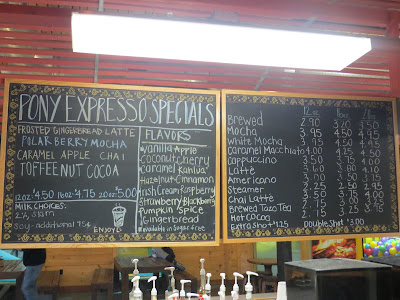 PONY EXPRESSO SPECIALS
FROSTED GINGERBREAD LATTE
POLAR BERRY MOCHA
CARAMEL APPLE CHAI
TOFFEENUT COCOA
12oz $4.50 16oz $4.75 20oz $5.00
MILK CHOICES:
2%, skim
soy - additional 75¢
ENJOY!
FLAVORS
Vanilla Apple
Coconut Cherry
Caramel Kahlua
Hazelnut Cinnamon
Irish Cream Raspberry
Strawberry Blackberry
Pumpkin Spice
Gingerbread
available in Sugar free
12oz 16oz 20oz
Brewed 2.90
Mocha 3.95 4.50
White Mocha 3.95 4.50
Caramel Macchiato 3.95 4.25
Cappuccino 3.50 3.75 4.00
Latte 3.50
Americano
Steamer 2.25 2.50 2.95
Chai Latte 3.75
Brewed Tazo Tea 2.75
Hot Cocoa 2.75
Extra Shot $1.25 Double Shot $3.00